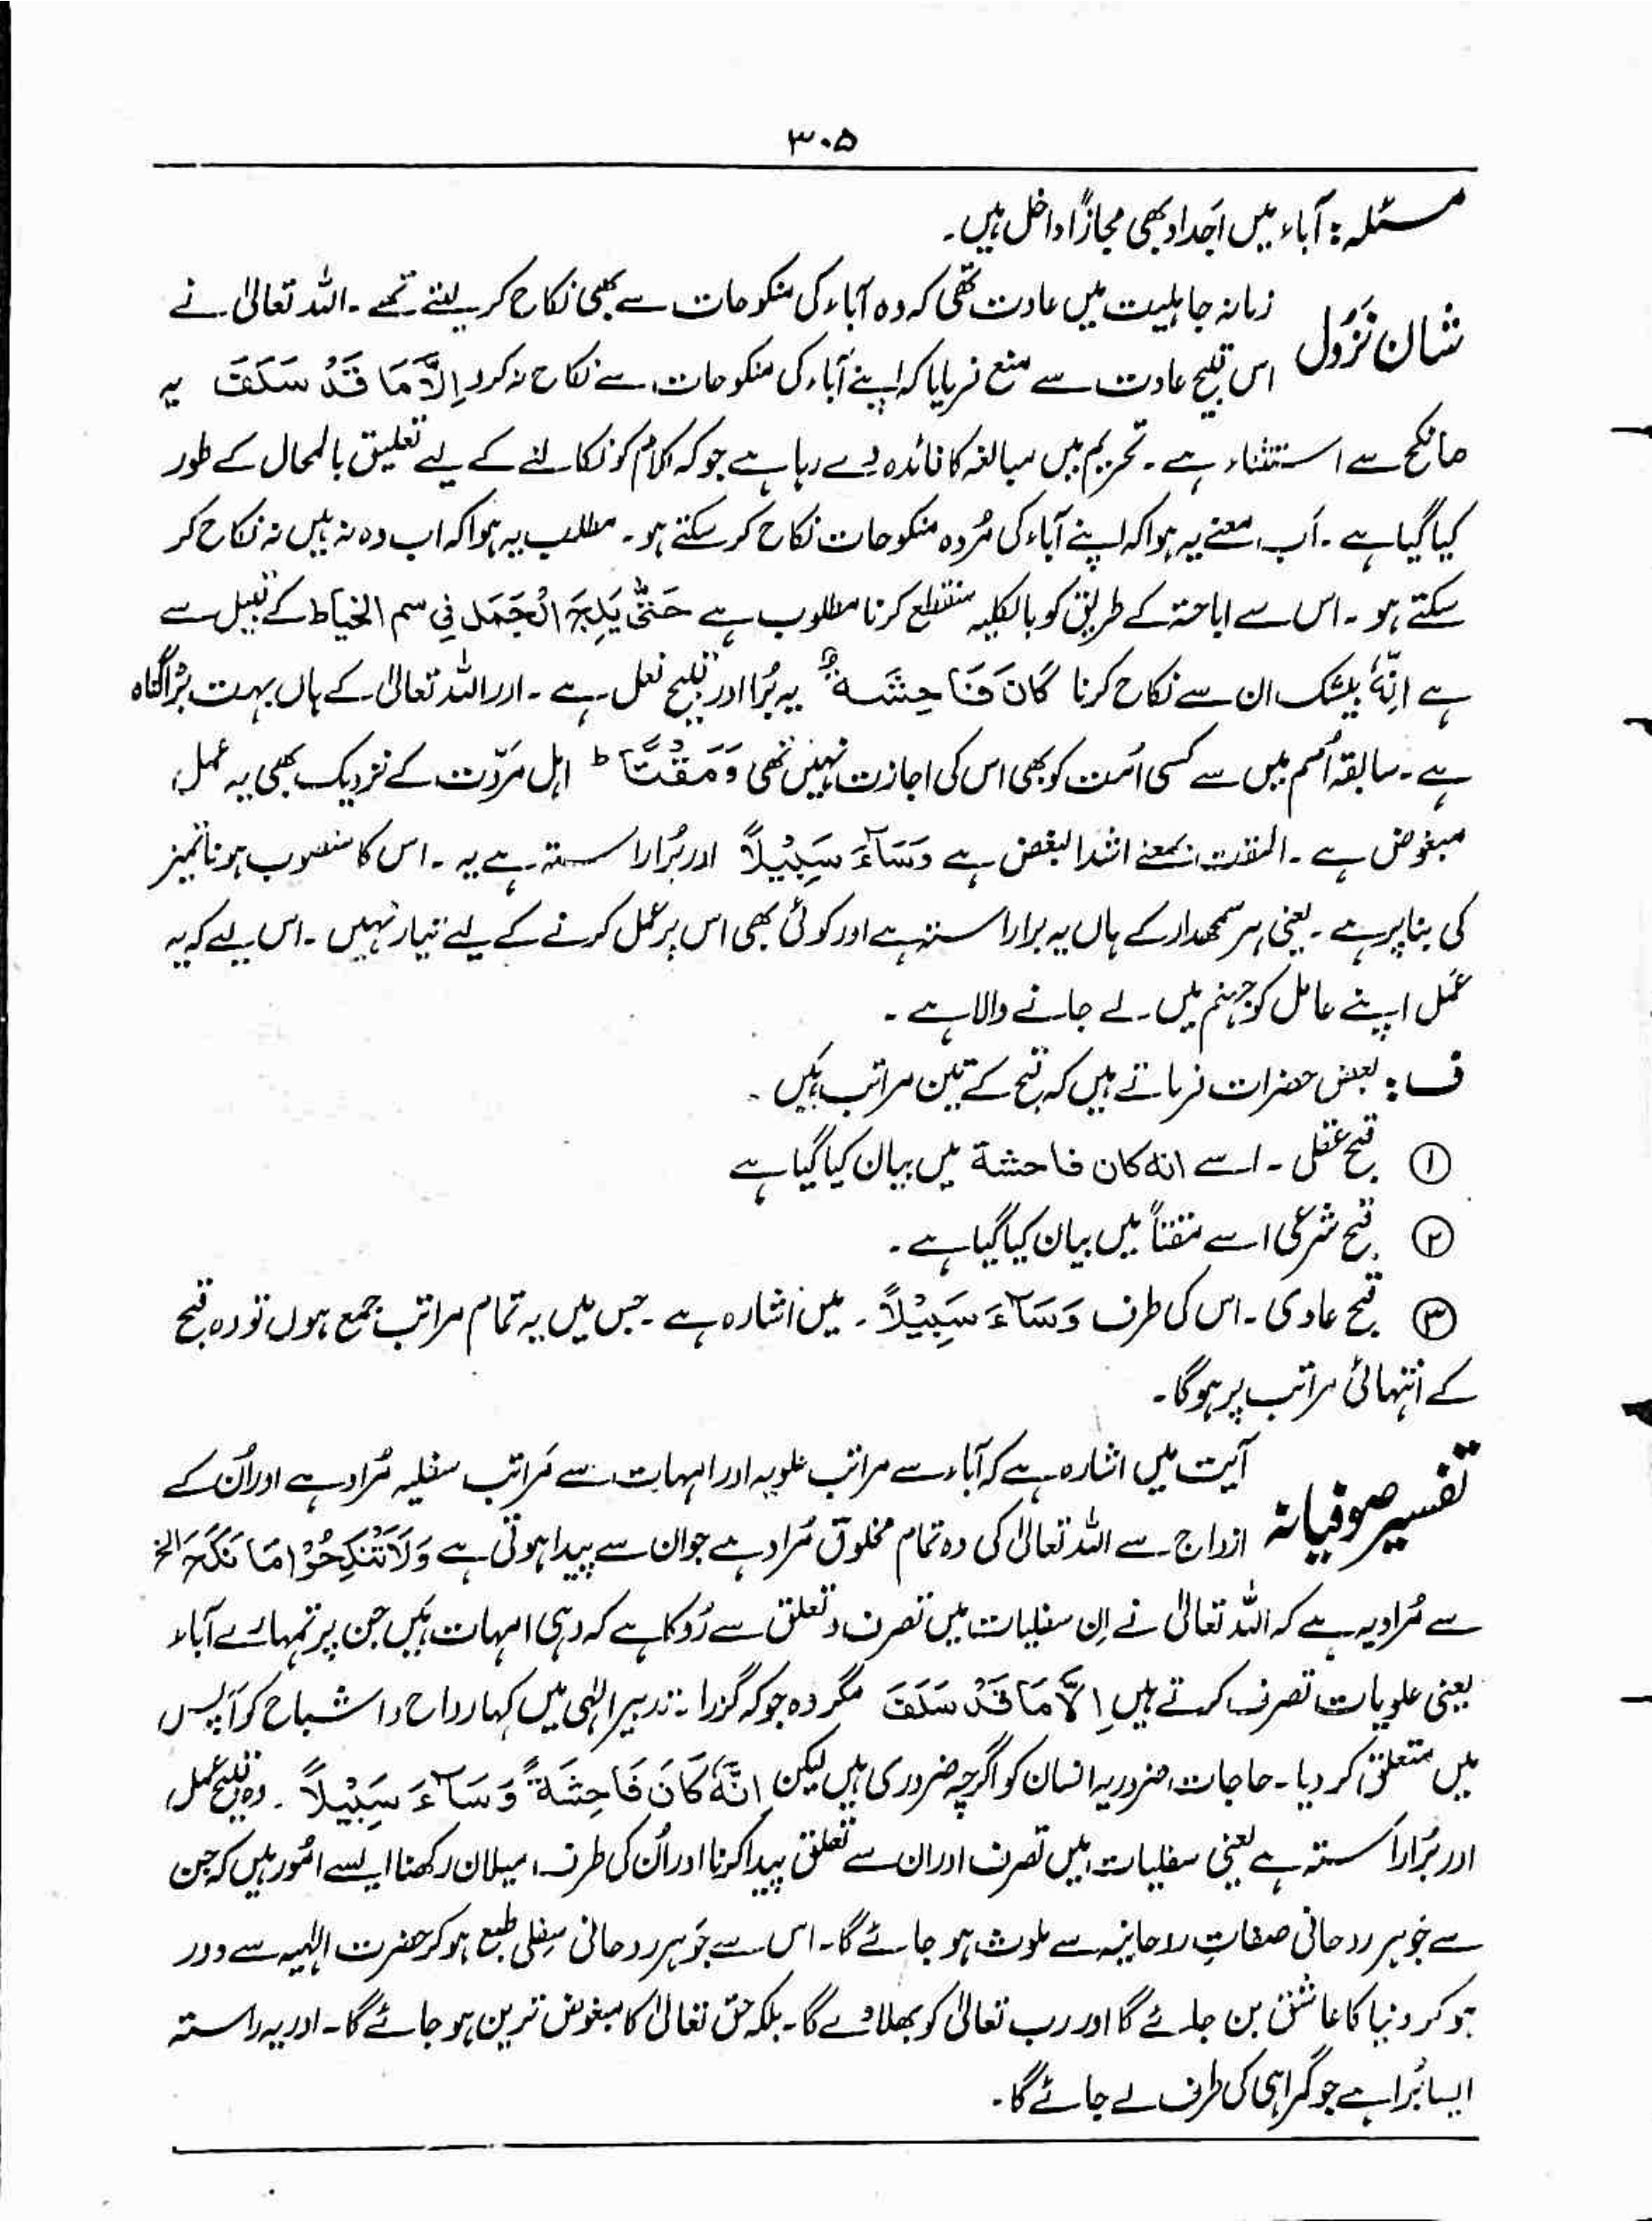 ۳۰۵
مسئلہ: آباء میں اَجداد بھی مجازًا داخل ہیں۔
شان نزول
زمانہ جاہلیت میں عادت تھی کہ وہ آباء کی منکوحات سے بھی نکاح کر لیتے تھے۔ اللہ تعالیٰ نے
اس قبیح عادت سے منع فرمایا کہ اپنے آباء کی منکوحات سے نکاح نہ کرو اِلَّا مَا قَدْ سَلَفَ یہ
مانکح سے استثناء ہے۔ تحریم میں مبالغہ کا فائدہ دے رہا ہے جو کہ کلام کو نکالنے کے لیے تعلیق بالمحال کے طور
کیا گیا ہے۔ اَب معنے یہ ہوا کہ اپنے آباء کی مُردہ منکوحات نکاح کر سکتے ہو۔ مطلب یہ ہوا کہ اب وہ نہ ہیں نہ نکاح کر
سکتے ہو۔ اس سے اباحتہ کے طریق کو بالکلیہ منقطع کرنا مطلوب ہے حَتّٰی یَلِجَ الْجَمَلُ فِی سم الخیاط کے قبیل سے
ہے اِنَّهٗ بیشک ان سے نکاح کرنا كَانَ فَاحِشَةً یہ بُرا اور قبیح فعل ہے۔ اور اللہ تعالیٰ کے ہاں بہت بڑا گناہ
ہے۔ سابقہ اُمم میں سے کسی اُمت کو بھی اس کی اجازت نہیں تھی وَمَقْتًا ط اہل مروّت کے نزدیک بھی یہ عمل
مبغوض ہے۔ المقت بمعنے اشد البغض ہے وَسَآءَ سَبِیْلًا اور بُرا راستہ ہے یہ۔ اس کا منصوب ہونا تمیز
کی بنا پر ہے۔ یعنی ہر سمجھدار کے ہاں یہ برا راستہ ہے اور کوئی بھی اس پر عمل کرنے کے لیے تیار نہیں۔ اس لیے کہ یہ
عمل اپنے عامل کو جہنم میں لے جانے والا ہے۔
ف: بعض حضرات فرماتے ہیں کہ قبح کے تین مراتب ہَیں۔
① قبح عقلی۔ اسے انه کان فاحشة میں بیان کیا گیا ہے
② قبح شرعی اسے مقتاً میں بیان کیا گیا ہے۔
③ قبح عادی۔ اس کی طرف وَسَآءَ سَبِیْلًا۔ میں اشارہ ہے۔ جس میں یہ تمام مراتب جمع ہوں تو وہ قبح
کے انتہائی مراتب پر ہوگا۔
تفسیر صوفیانہ
آیت میں اشارہ ہے کہ آباء سے مراتب علویہ اور امہات سے مَراتب سفلیہ مُراد ہے اور اُن کے
ازدواج سے اللہ تعالیٰ کی وہ تمام مخلوق مُراد ہے جو ان سے پیدا ہوتی ہے وَلَا تَنْكِحُوْا مَا نَكَحَ الخ
سے مُراد یہ ہے کہ اللہ تعالیٰ نے اِن سفلیات میں تصرف و تعلق سے رُوکا ہے کہ وہی امہات ہَیں جن پر تمہارے آباء
یعنی علویات تصرف کرتے ہیں اِلَّا مَا قَدْ سَلَفَ مگر وہ جو کہ گزرا۔ تدبیر الٰہی میں کہ ارواح و اشباح کو آپس
میں متعلق کر دیا۔ حاجات ضروریہ انسان کو اگرچہ ضروری ہیں لیکن اِنَّهٗ كَانَ فَاحِشَةً وَسَآءَ سَبِیْلًا۔ وہ قبیح عمل
اور بُرا راستہ ہے یعنی سفلیات میں تصرف اور ان سے تعلق پیدا کرنا اور اُن کی طرف میلان رکھنا ایسے امُور ہیں کہ جن
سے جَوہر روحانی صفاتِ سے ملوث ہو جائے گا۔ اس سے جَوہر روحانی سِفلی طبع ہو کر حضرت الٰہیہ سے دور
ہو کر دنیا کا عاشق بن جائے گا اور رب تعالیٰ کو بھلا دے گا۔ بلکہ حق تعالیٰ کا مبغوض ترین ہو جائے گا۔ اور یہ راستہ
ایسا بُرا ہے جو گمراہی کی طرف لے جائے گا۔